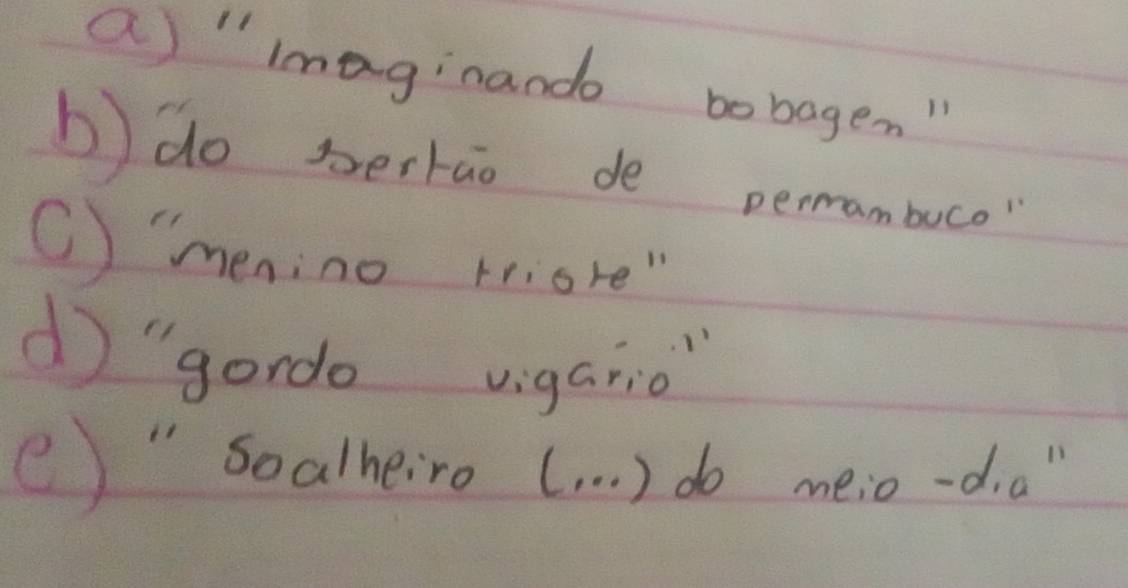 a) "imaginando bobagem"
b) "do sertão de pernambuco"
c) "menino triste"
d) "gordo vigário"
e) "soalheiro (...) do meio-dia"